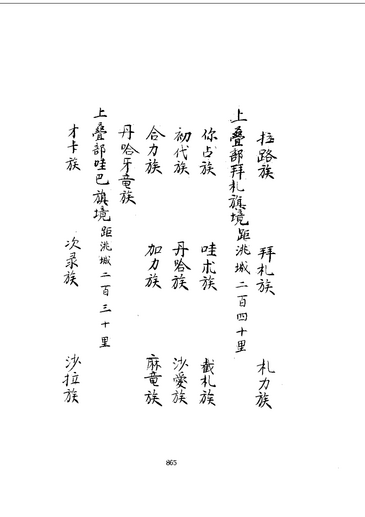 拉路族 拜札族 札力族
上疊部拜札旗境距洮城二百四十里
你占族 哇术族 截札族
初代族 丹哈族 沙愛族
合力族 加力族 麻竜族
丹哈牙竜族
上疊部哇巴旗境距洮城二百三十里
才卡族 次录族 沙拉族
865